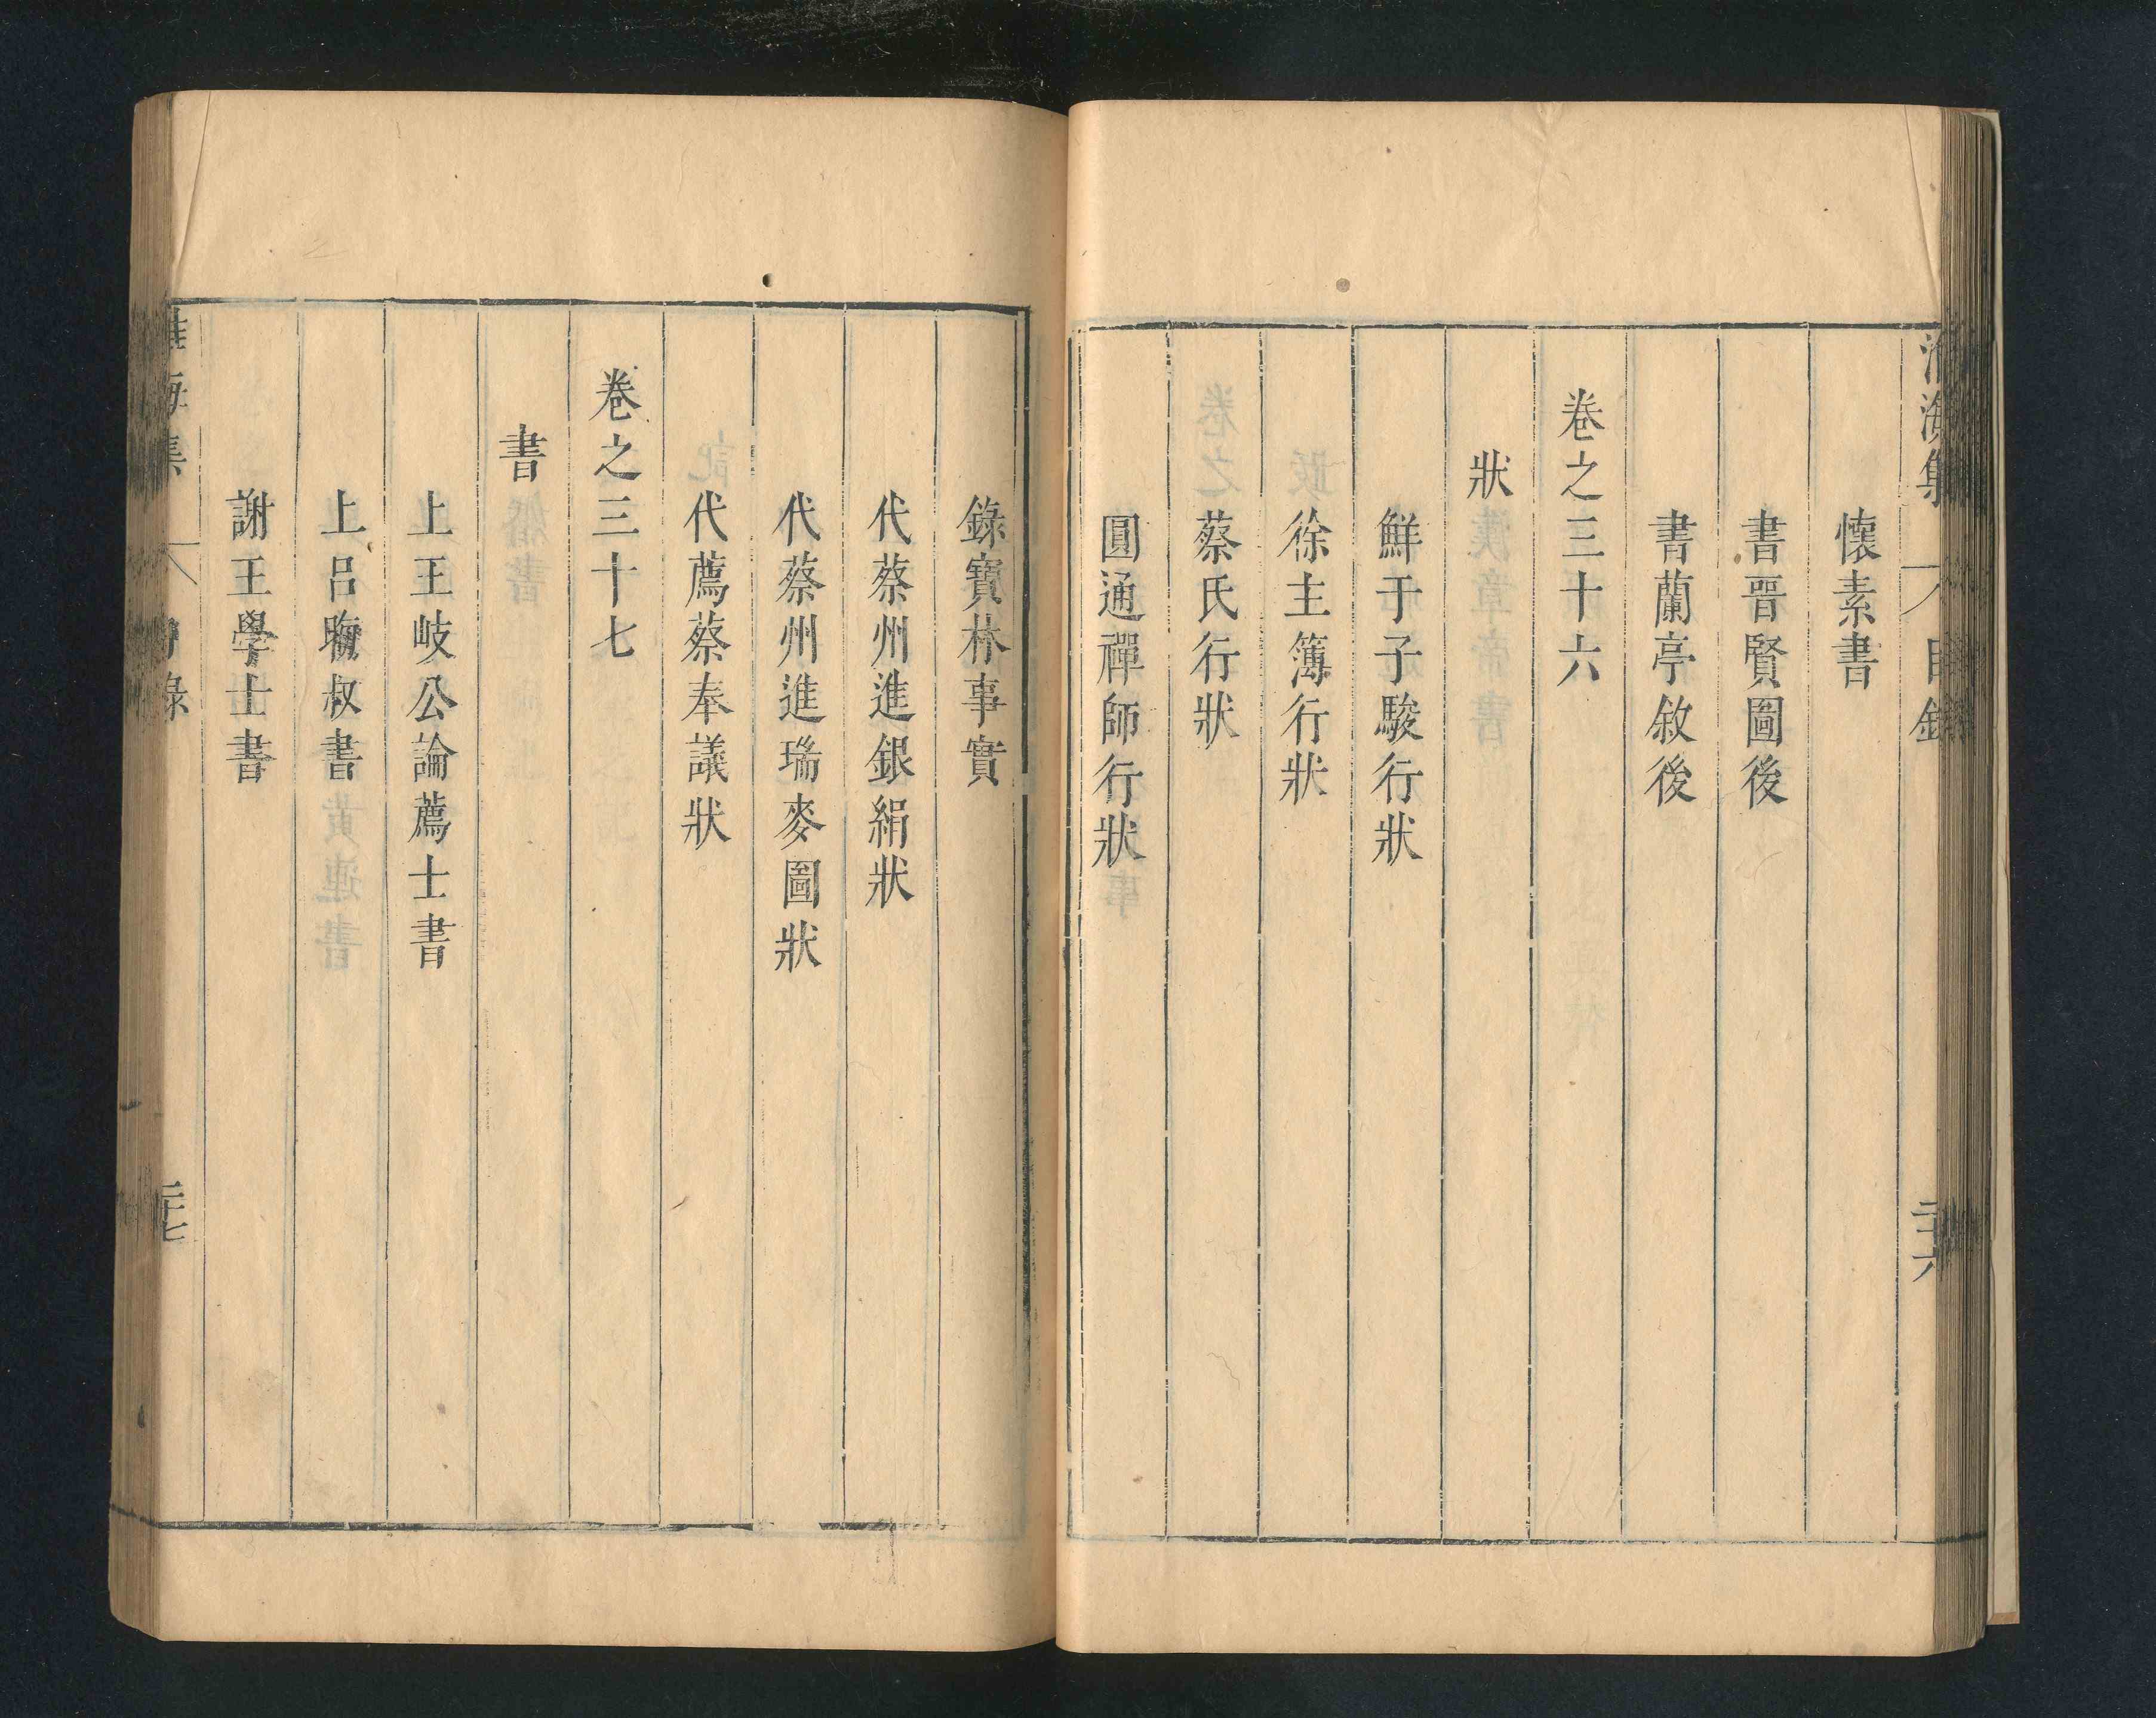 淮海集 目錄 二十六
懷素書
書晉賢圖後
書蘭亭敘後
卷之三十六
狀
鮮于子駿行狀
徐主簿行狀
蔡氏行狀
圓通禪師行狀
錄寶林事實
代蔡州進銀絹狀
代蔡州進瑞麥圖狀
代薦蔡奉議狀
卷之三十七
書
上王岐公論薦士書
上呂晦叔書
謝王學士書
淮海集 目錄 二十七